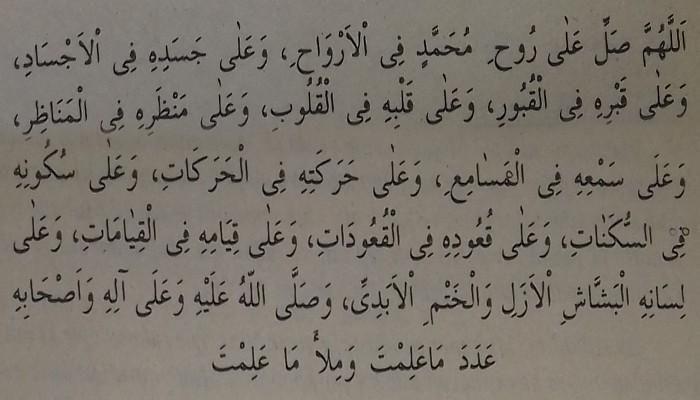 اَللّٰهُمَّ صَلِّ عَلٰى رُوحِ مُحَمَّدٍ فِى الْاَرْوَاحِ، وَعَلٰى جَسَدِهِ فِى الْاَجْسَادِ،
وَعَلٰى قَبْرِهِ فِى الْقُبُورِ، وَعَلٰى قَلْبِهِ فِى الْقُلُوبِ، وَعَلٰى مَنْظَرِهِ فِى الْمَنَاظِرِ،
وَعَلَى سَمْعِهِ فِى الْمَسَامِعِ، وَعَلٰى حَرَكَتِهِ فِى الْحَرَكَاتِ، وَعَلٰى سُكُونِهِ
فِى السُّكَنَاتِ، وَعَلٰى قُعُودِهِ فِى الْقُعُودَاتِ، وَعَلٰى قِيَامِهِ فِى الْقِيَامَاتِ، وَعَلٰى
لِسَانِهِ الْبَشَّاشِ الْاَزَلِ وَالْخَتْمِ الْاَبَدِىِّ، وَصَلَّى اللّٰهُ عَلَيْهِ وَعَلَى آلِهِ وَاَصْحَابِهِ
عَدَدَ مَاعَلِمْتَ وَمِلأَ مَا عَلِمْتَ